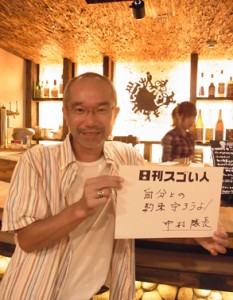 日刊スゴい人
自分との
約束守ろうよ!
中村 隊長